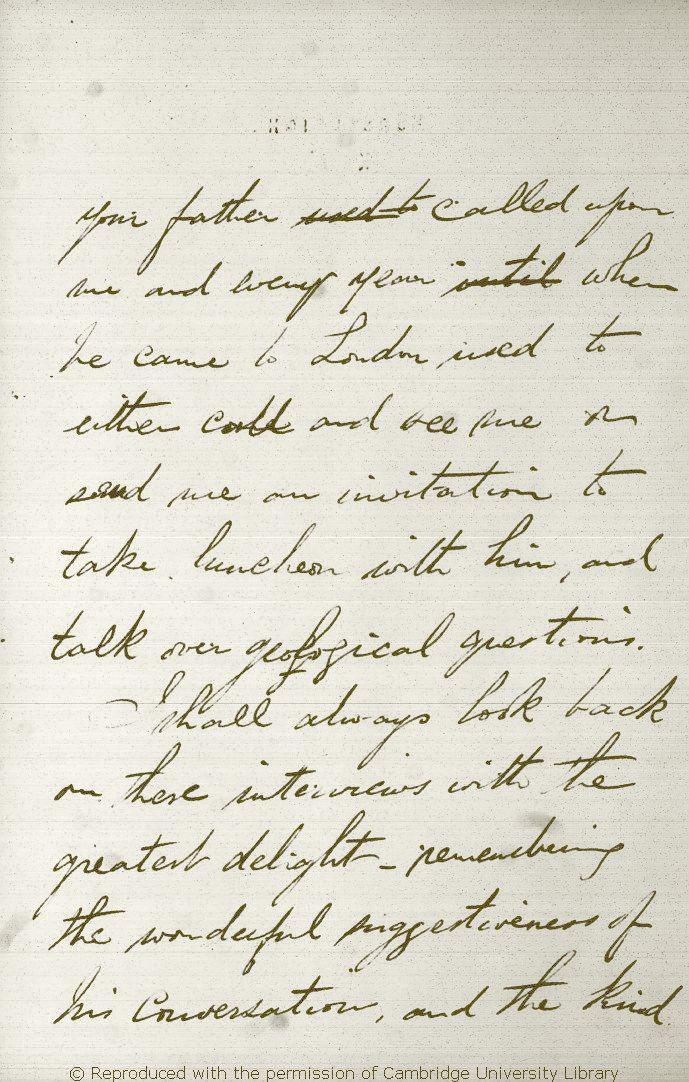 your father used to called upon
me and every year until when
he came to London used to
either call and see me or
send me an invitation to
take luncheon with him, and
talk over geological questions.
I shall always look back
on these interviews with the
greatest delight – remembering
the wonderful suggestiveness of
his conversation, and the kind
© Reproduced with the permission of Cambridge University Library